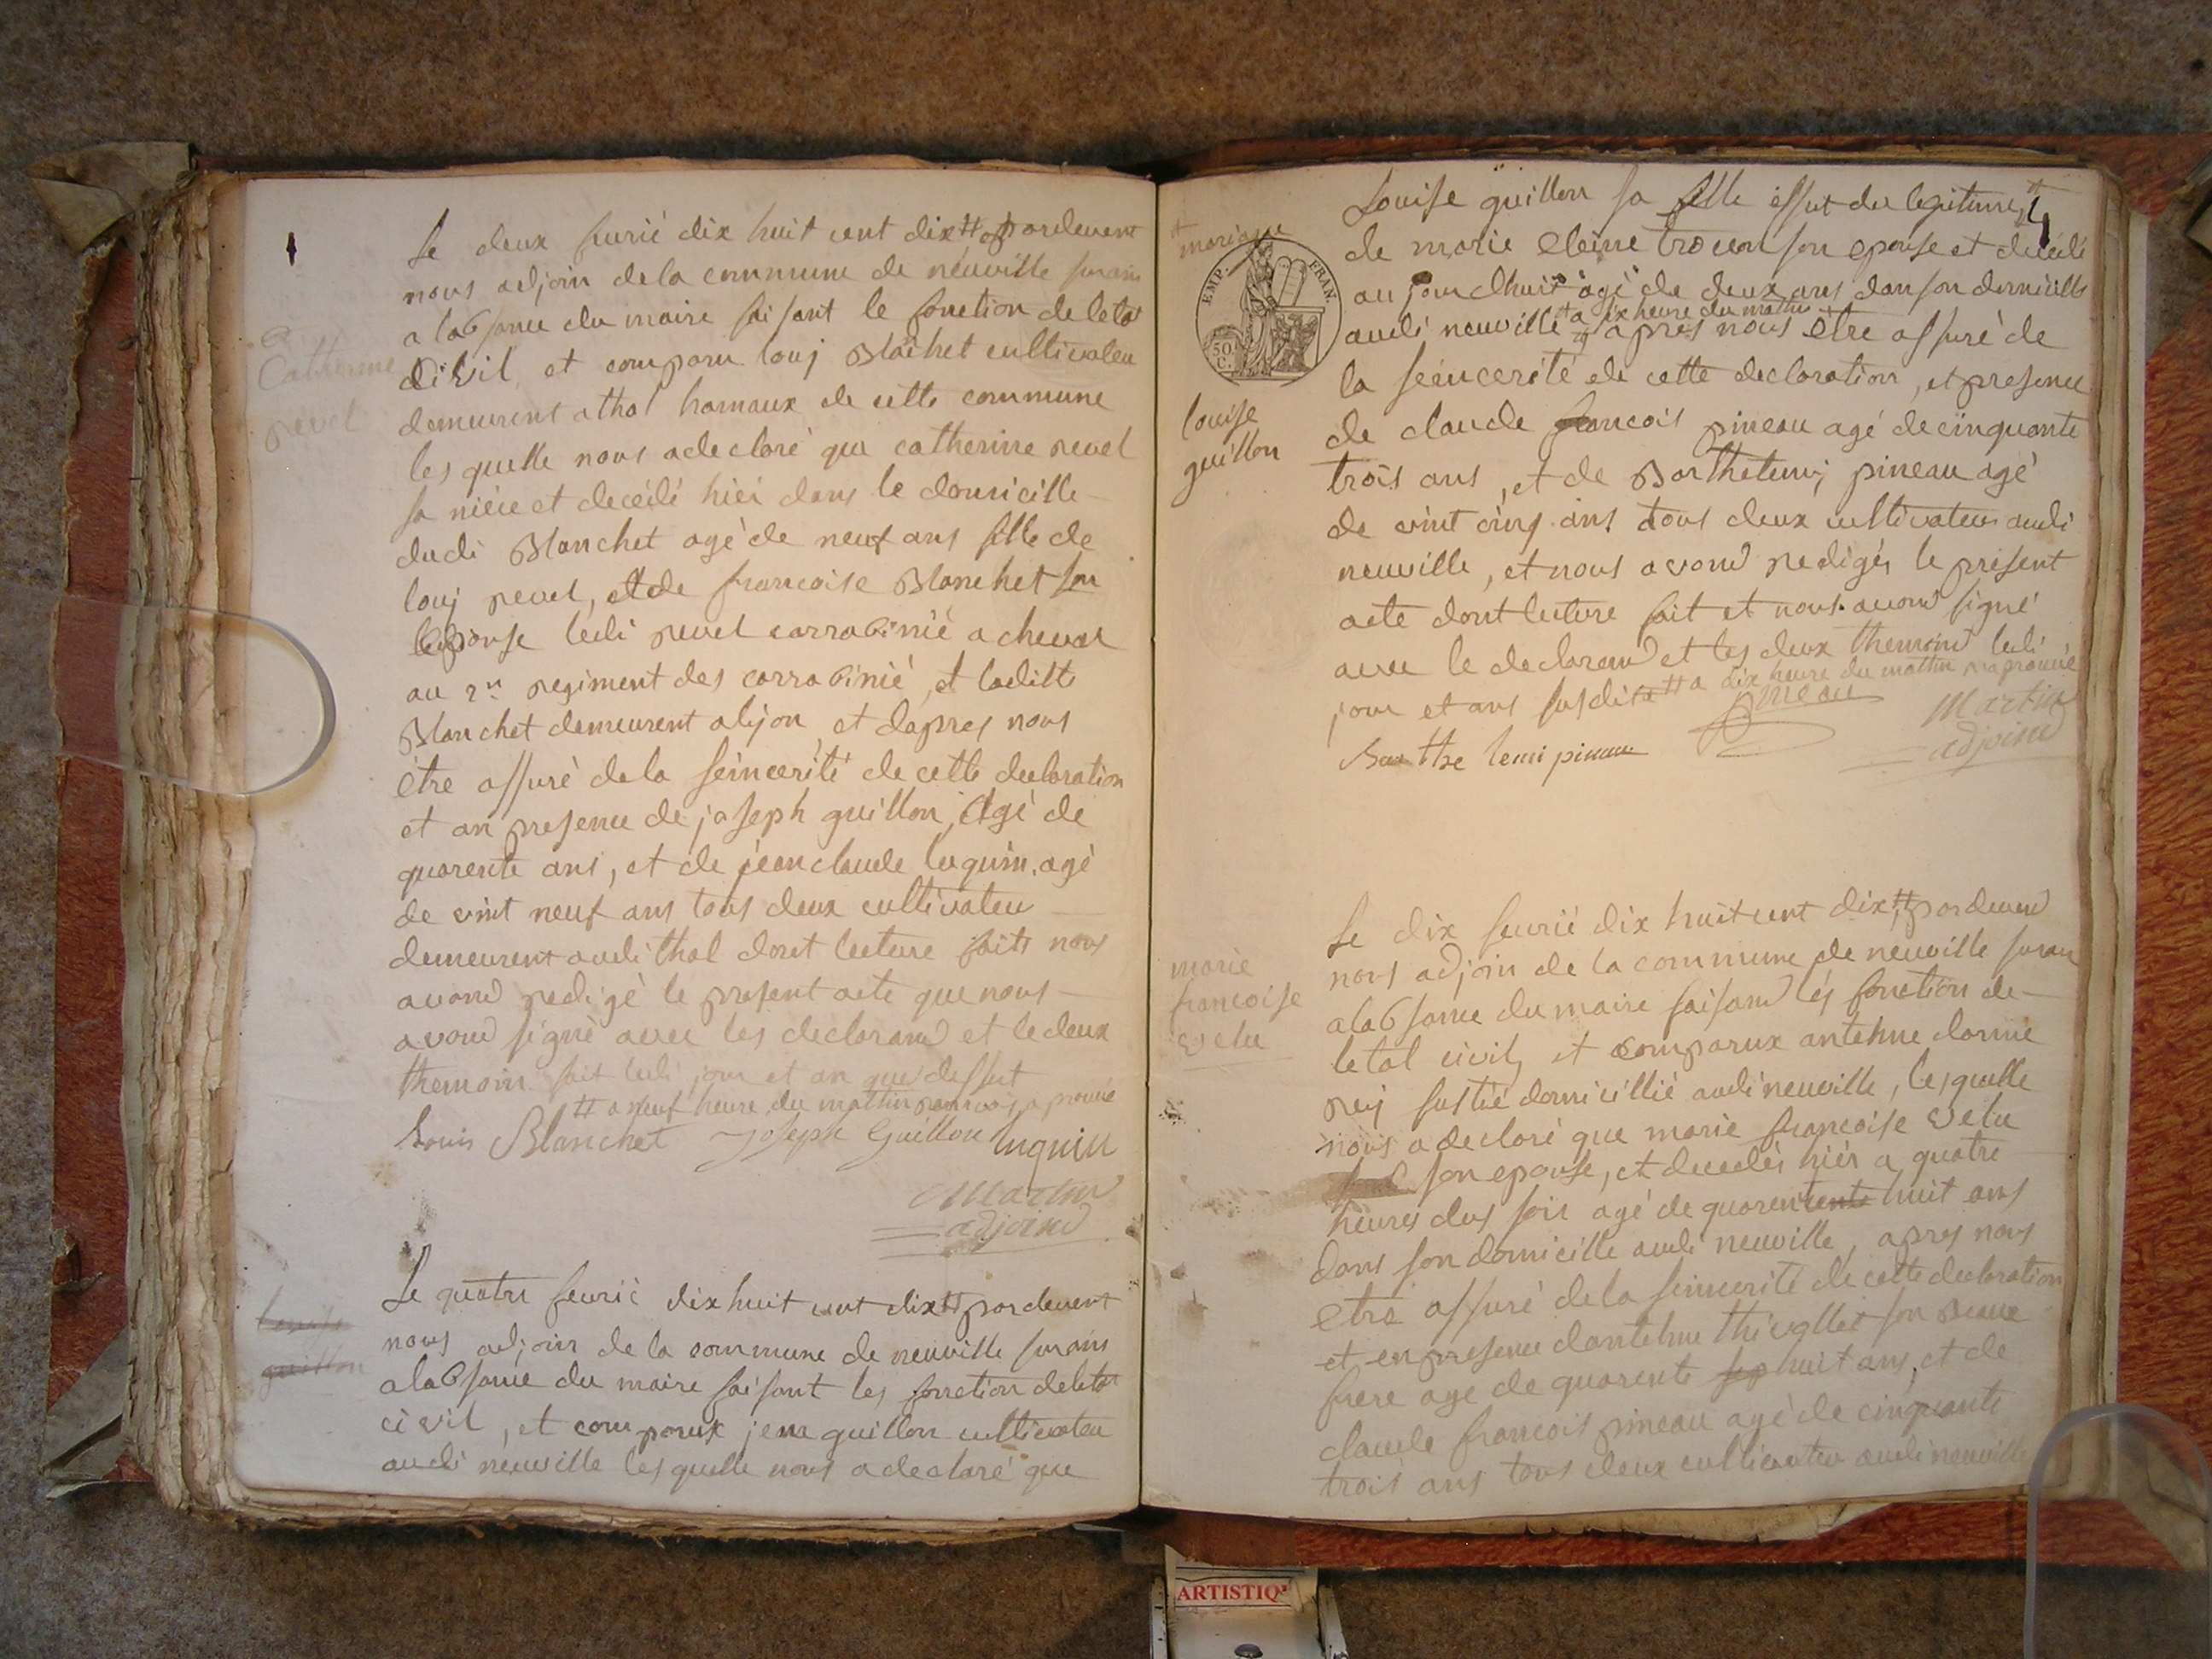 Catherine
revel
Le deux fevrié dix huit cent dix # pardevent
nous adjoin de la commune de neuville surain
a labsance du maire faisant le fonction de letat
Civil, et comparu louj Blachet cultivateu
demeurent a thol hamaux de cette commune
lesquelle nous adeclaré que catherine revel
sa niéce et decédé hiei dans le domicille
dudi Blanchet agé de neuf ans fille de
louj revel, et de francoise Blanchet son
Epouse ledi revel carrabinié a cheval
au 2n regiment des carrabinié, et laditte
Blanchet demeurent alijon et dapres nous
étre assuré de la seincerité de cette declaration
et an presence de joseph guillon, Agé de
quarente ans, et de jean claude luquin, agé
de vint neuf ans tous deux cultivateu
demeurent audi thol dont lecture faite nous
avond redigé le present acte que nous
avond signé avec les declarand et le deux
themoin fait ledi jour et an que dessut
# a neuf heure du mattin aprouvé
Louis Blanchet Joseph Guillon luquin
Martin
adjoind
Louise
guillon
Le quatre fevrié dix huit cent dix # pardevent
nous adjoin de la commune de neuville surain
a labsance du maire faisant les fonction de letat
civil, et comparux jean guillon cultivateu
audi neuville lesquelle nous a declaré que
mariane
EMP. FRAN.
50 C.
louise
guillon
Louise guillon sa fille essut du legitime
de marie eleine son epouse et décédé
au jourdhuit agé de deux ans dan son domicille
# a dix heure du mattin
audi neuville # apres nous être assuré de
la seincerété de cette declaration, et presence
de claude francois pineau agé de cinquante
trois ans, et de Barthelemj pineau agé
de vint cinq ans tous deux cultivateu audi
neuville, et nous avond redigér le présent
acte dont lecture fait et nous avond signé
avec le declarand et les deux themoind ledi
jour et ans susdit # a dix heure du mattin
pineau Martin
adjoind
Barthelemi pineau
marie
francoise
velu
Le dix fevrié dix huit cent dix # pardevend
nous adjoin de la commune de neuville surain
a labsance du maire faisand les fonction de
letat civil, et comparux antelme
rey domicillié audi neuville, lesquelle
nous a declaré que marie francoise velu
son epouse, et decedér hiér a quatre
heures dus soir agé de quarentente huit ans
dans son domicille audi neuville, apres nous
etre assuré de la seincerité de cette declaration
et en presence dantelme thévollet son Beaux
frere age de quarente sep huit ans, et de
claude francois pineau agé de cinquante
trois ans tous deux cultivateu audi neuville
ARTISTIQ